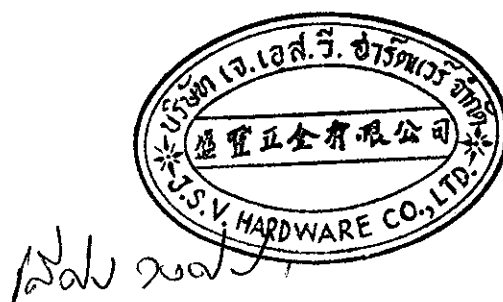 บริษัท เจ.เอส.วี. ฮาร์ดแวร์ จำกัด
盛豐五金有限公司
J.S.V. HARDWARE CO., LTD.